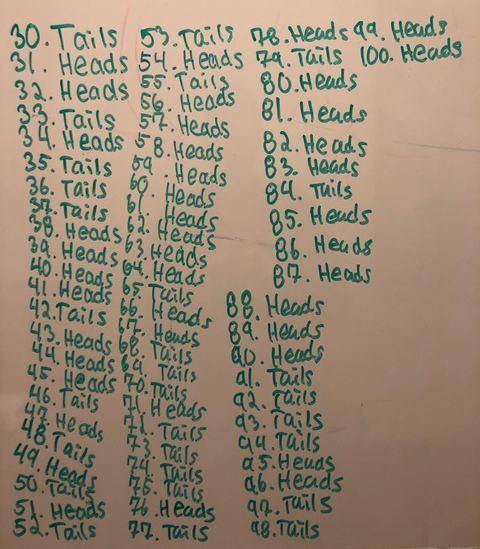 30. Tails
31. Heads
32. Heads
33. Tails
34. Heads
35. Tails
36. Tails
37. Tails
38. Heads
39. Heads
40. Heads
41. Heads
42. Tails
43. Heads
44. Heads
45. Heads
46. Tails
47. Heads
48. Tails
49. Heads
50. Tails
51. Heads
52. Tails
53. Tails
54. Heads
55. Tails
56. Heads
57. Heads
58. Heads
59. Heads
60. Heads
61. Heads
62. Heads
63. Heads
64. Heads
65. Tails
66. Heads
67. Heads
68. Tails
69. Tails
70. Tails
71. Heads
71. Tails
73. Tails
74. Tails
75. Tails
76. Heads
77. Tails
78. Heads
79. Tails
80. Heads
81. Heads
82. Heads
83. Heads
84. Tails
85. Heads
86. Heads
87. Heads
88. Heads
89. Heads
90. Heads
91. Tails
92. Tails
93. Tails
94. Tails
95. Heads
96. Heads
97. Tails
98. Tails
99. Heads
100. Heads